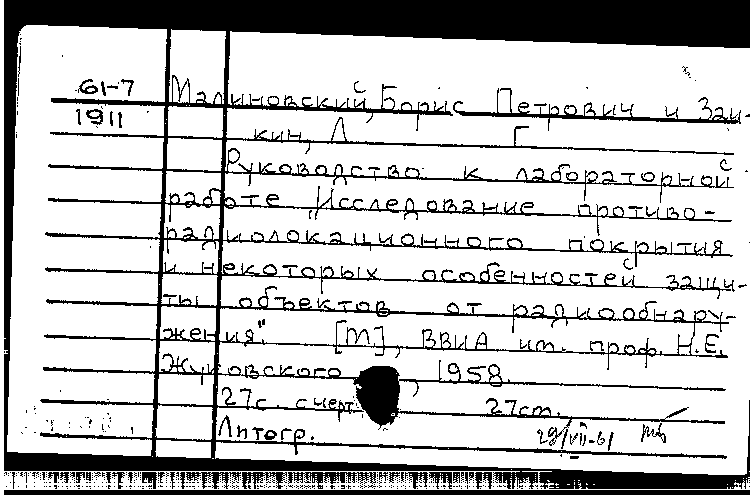 61-7 Малиновский, Борис Петрович и Заи-
1911
кин, Л Г
Руководство к лабораторной
работе „Исследование противо-
радиолокационного покрытия
и некоторых особенностей защи-
ты объектов от радиообнару-
жения". [М], ВВИА им. проф. Н.Е.
Жуковского, 1958.
27с. с черт. 27см.
Литогр. 29/VII-61